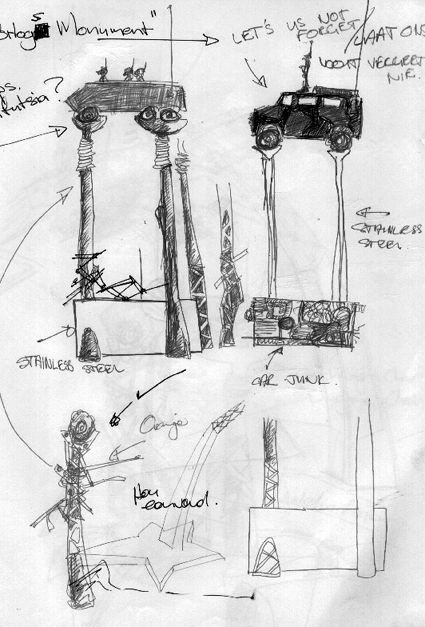 Monument"
LET'S US NOT
FORGET/
LAAT ONS
NOOIT VERGEET
NIE.
STAINLESS
STEEL.
STAINLESS STEEL
CAR JUNK.
Oranje